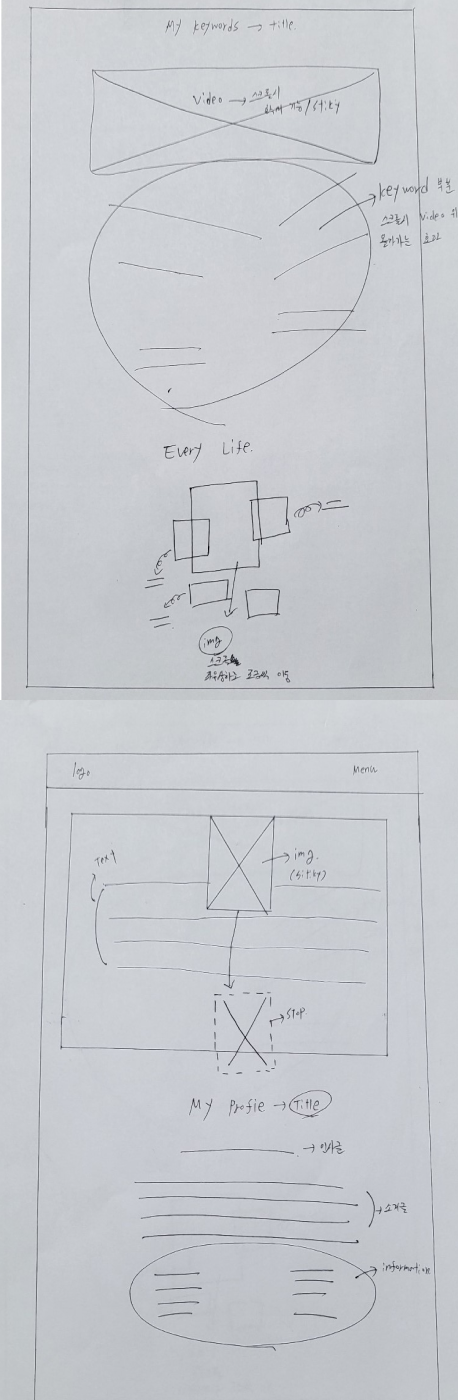 My keywords → title.
Video → 스크롤시
기능/Sticky
keyword 부분
스크롤시 Video 위
올라가는 효과
Every Life.
img
스크롤
이동
logo
Menu
Text
img.
(Sticky)
Stop
My Profie → Title
인사글
소개글
information